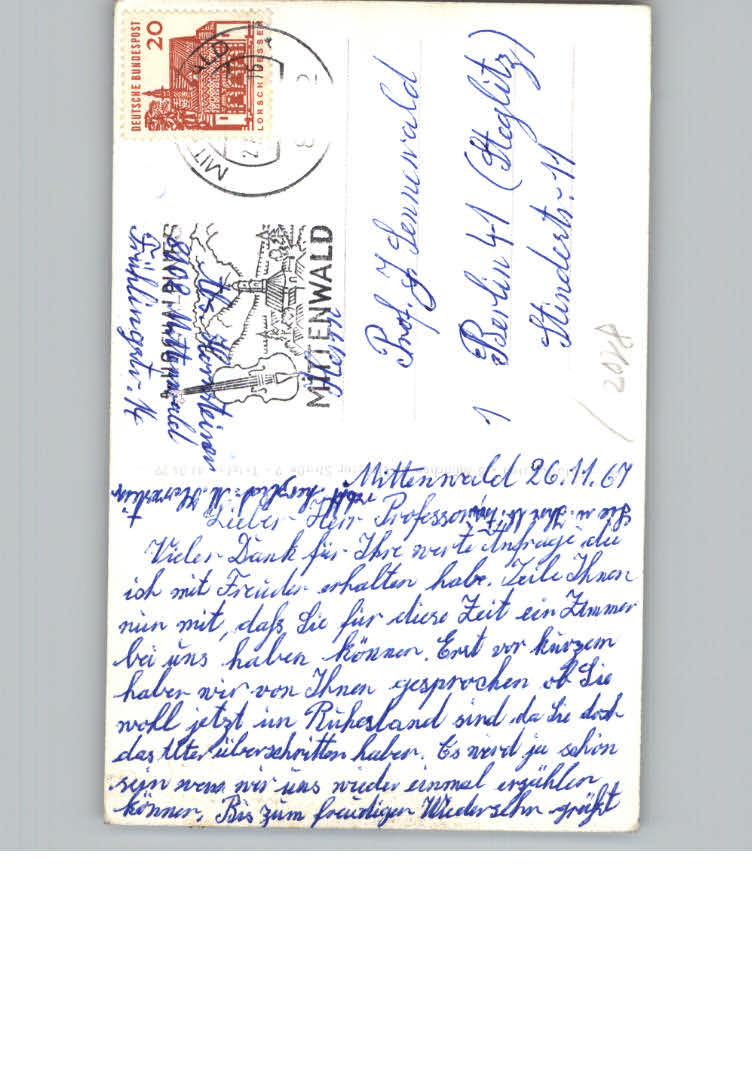 Mittenwald 26.11.67
Lieber Herr Professor
Vielen Dank für Ihre werte Anfrage die
ich mit Freuden erhalten habe. Teile Ihnen
nun mit, daß Sie für diese Zeit ein Zimmer
bei uns haben können. Erst vor kurzem
haben wir von Ihnen gesprochen ob Sie
wohl jetzt im Ruhestand sind da Sie doch
das Alter überschritten haben. Es wird ja schön
sein wenn wir uns wieder einmal erzählen
können. Bis zum freudigen Wiedersehn grüßt
Sie
herzlich
DEUTSCHE BUNDESPOST
20
LORSCH/HESSEN
MITTENWALD
Abs. Hornsteiner
8102 Mittenwald
Frühlingstr. 14
Herrn
Prof. J. Lennewald
1 Berlin 41 (Steglitz)
Stindestr. 11
2028